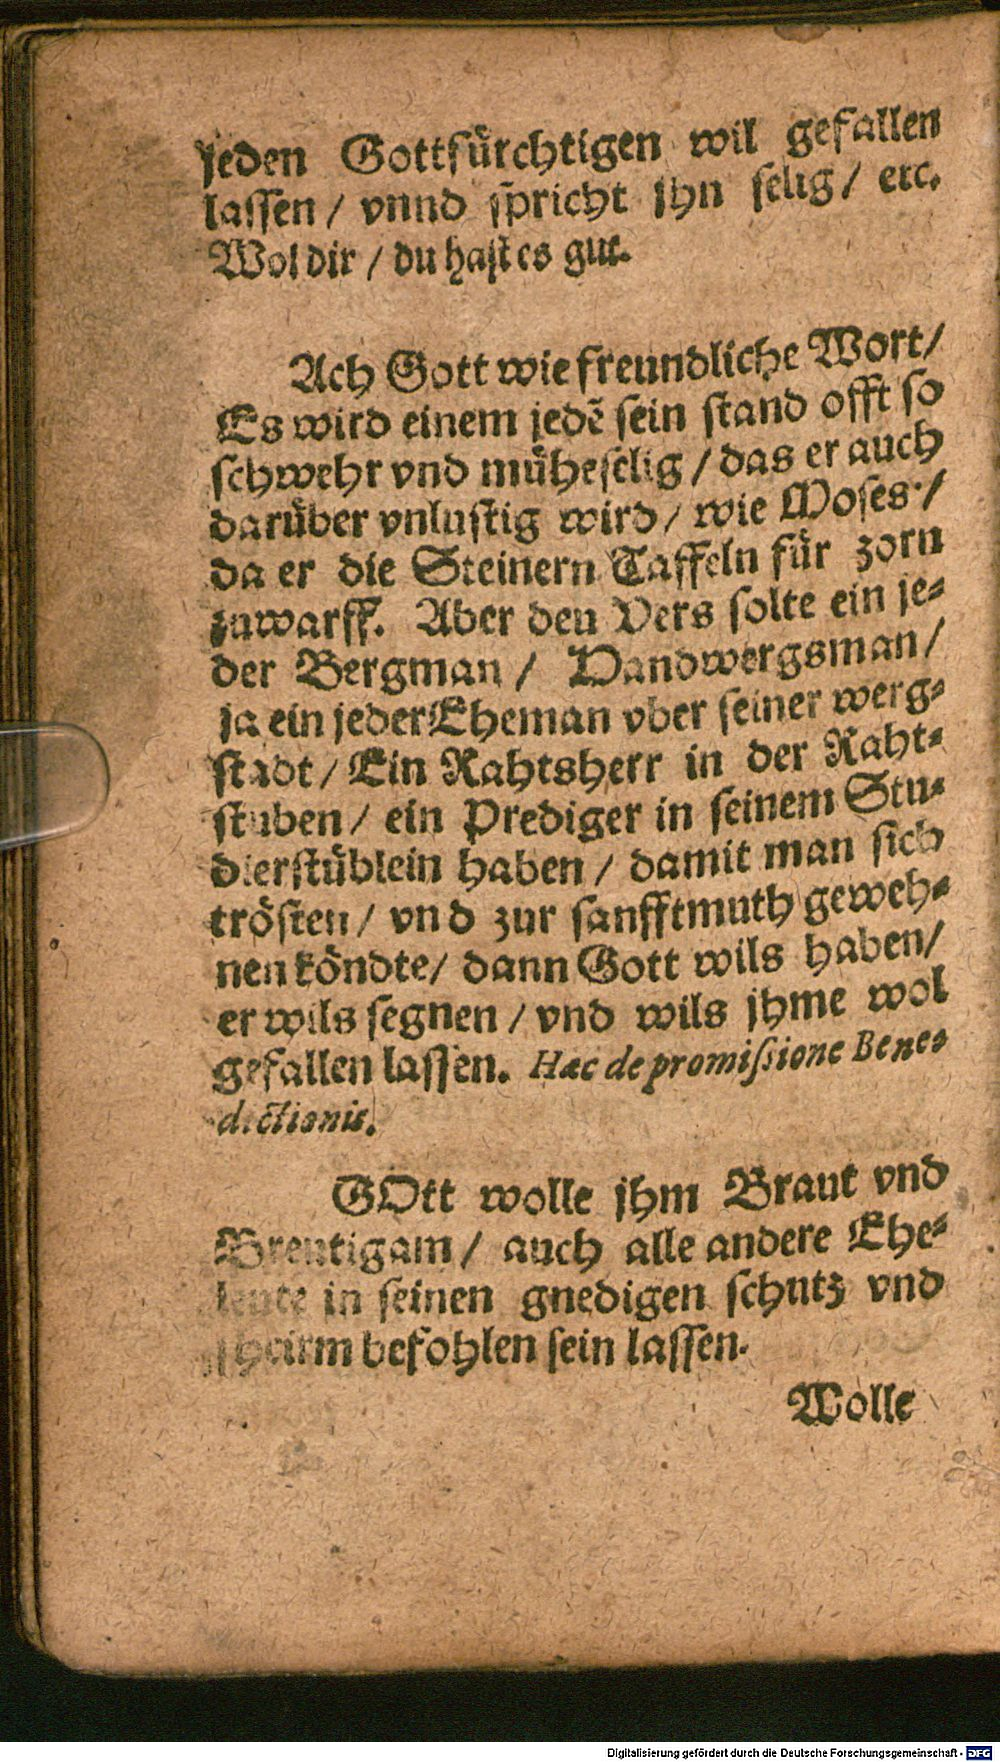 jeden Gottfürchtigen wil gefallen
lassen / vnnd spricht jhn selig / etc.
Wol dir / du hast es gut.
Ach Gott wie freundliche Wort /
Es wird einem jedẽ sein stand offt so
schwehr vnd müheselig / das er auch
darüber vnlustig wird / wie Moses /
da er die Steinern Taffeln für zorn
zuwarff. Aber den Vers solte ein je-
der Bergman / Handwergsman /
ja ein jeder Eheman vber seiner werg-
stadt / Ein Rahtsherr in der Raht-
stuben / ein Prediger in seinem Stu-
dierstüblein haben / damit man sich
trösten / vnd zur sanfftmuth geweh-
nen köndte / dann Gott wils haben /
er wils segnen / vnd wils jhme wol
gefallen lassen. Hæc de promissione Bene-
dictionis.
GOtt wolle jhm Braut vnd
Breutigam / auch alle andere Ehe-
leute in seinen gnedigen schutz vnd
schirm befohlen sein lassen.
Wolle
Digitalisierung gefördert durch die Deutsche Forschungsgemeinschaft - DFG